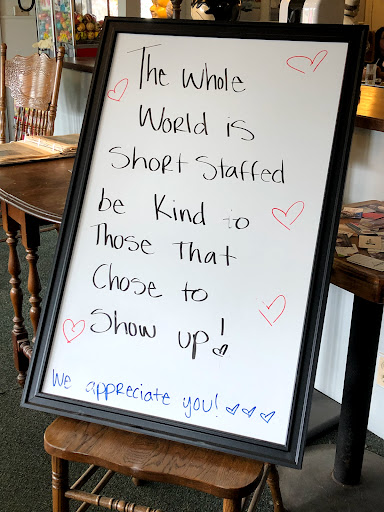 The Whole
World is
Short Staffed
be Kind to
Those That
Chose to
Show up!
We appreciate you!